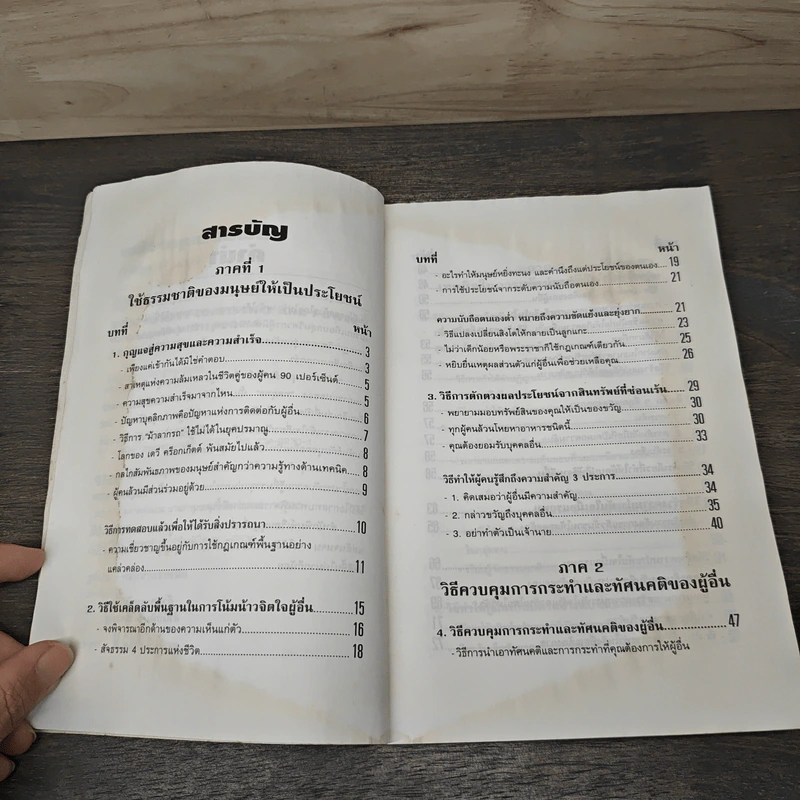 สารบัญ
ภาคที่ 1
ใช้ธรรมชาติของมนุษย์ให้เป็นประโยชน์
บทที่ หน้า
1. กุญแจสู่ความสุขและความสำเร็จ 3
- เพียงแค่เข้ากันได้มิใช่คำตอบ 4
- สาเหตุแห่งความล้มเหลวในชีวิตคู่ของผู้คน 90 เปอร์เซ็นต์ 5
- ความสุขความสำเร็จมาจากไหน 5
- ปัญหาบุคลิกภาพคือปัญหาแห่งการติดต่อกับผู้อื่น 6
- วิธีการ "ม้าลากรถ" ใช้ไม่ได้ในยุคปรมาณู 7
- โลกของ เดวี คร็อกเก็ตต์ พ้นสมัยไปแล้ว 8
- กลไกสัมพันธภาพของมนุษย์สำคัญกว่าความรู้ทางด้านเทคนิค 8
- ผู้คนล้วนมีส่วนร่วมอยู่ด้วย 9
วิธีการทดสอบแล้วเพื่อให้ได้รับสิ่งปรารถนา 10
- ความเชี่ยวชาญขึ้นอยู่กับการใช้กฎเกณฑ์พื้นฐานอย่าง
แคล่วคล่อง 11
2. วิธีใช้เคล็ดลับพื้นฐานในการโน้มน้าวจิตใจผู้อื่น 15
- จงพิจารณาอีกด้านของความเห็นแก่ตัว 16
- สัจธรรม 4 ประการแห่งชีวิต 18
บทที่ หน้า
- อะไรทำให้มนุษย์หยิ่งทะนง และคำนึงถึงแต่ประโยชน์ของตนเอง 19
- การใช้ประโยชน์จากระดับความนับถือตนเอง 21
ความนับถือตนเองต่ำ หมายถึงความขัดแย้งและยุ่งยาก 21
- วิธีแปลงเปลี่ยนสิงโตให้กลายเป็นลูกแกะ 23
- ไม่ว่าเด็กน้อยหรือพระราชาก็ใช้กฎเกณฑ์เดียวกัน 25
- หยิบยื่นเหตุผลส่วนตัวแก่ผู้อื่นเพื่อช่วยเหลือคุณ 26
3. วิธีการตักตวงผลประโยชน์จากสินทรัพย์ที่ซ่อนเร้น 29
- พยายามมอบทรัพย์สินของคุณให้เป็นของขวัญ 30
- ทุกผู้คนล้วนโหยหาอาหารชนิดนี้ 30
- คุณต้องยอมรับบุคคลอื่น 33
วิธีทำให้ผู้คนรู้สึกถึงความสำคัญ 3 ประการ 34
- 1. คิดเสมอว่าผู้อื่นมีความสำคัญ 34
- 2. กล่าวขวัญถึงบุคคลอื่น 35
- 3. อย่าทำตัวเป็นเจ้านาย 40
ภาค 2
วิธีควบคุมการกระทำและทัศนคติของผู้อื่น
4. วิธีควบคุมการกระทำและทัศนคติของผู้อื่น 47
- วิธีการนำเอาทัศนคติและการกระทำที่คุณต้องการให้ผู้อื่น